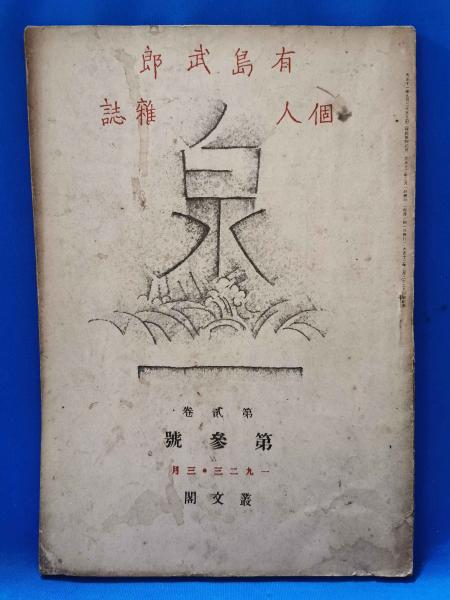 有島武郎
個人雜誌
泉
第貳卷
第參號
一九二三・三月
叢文閣